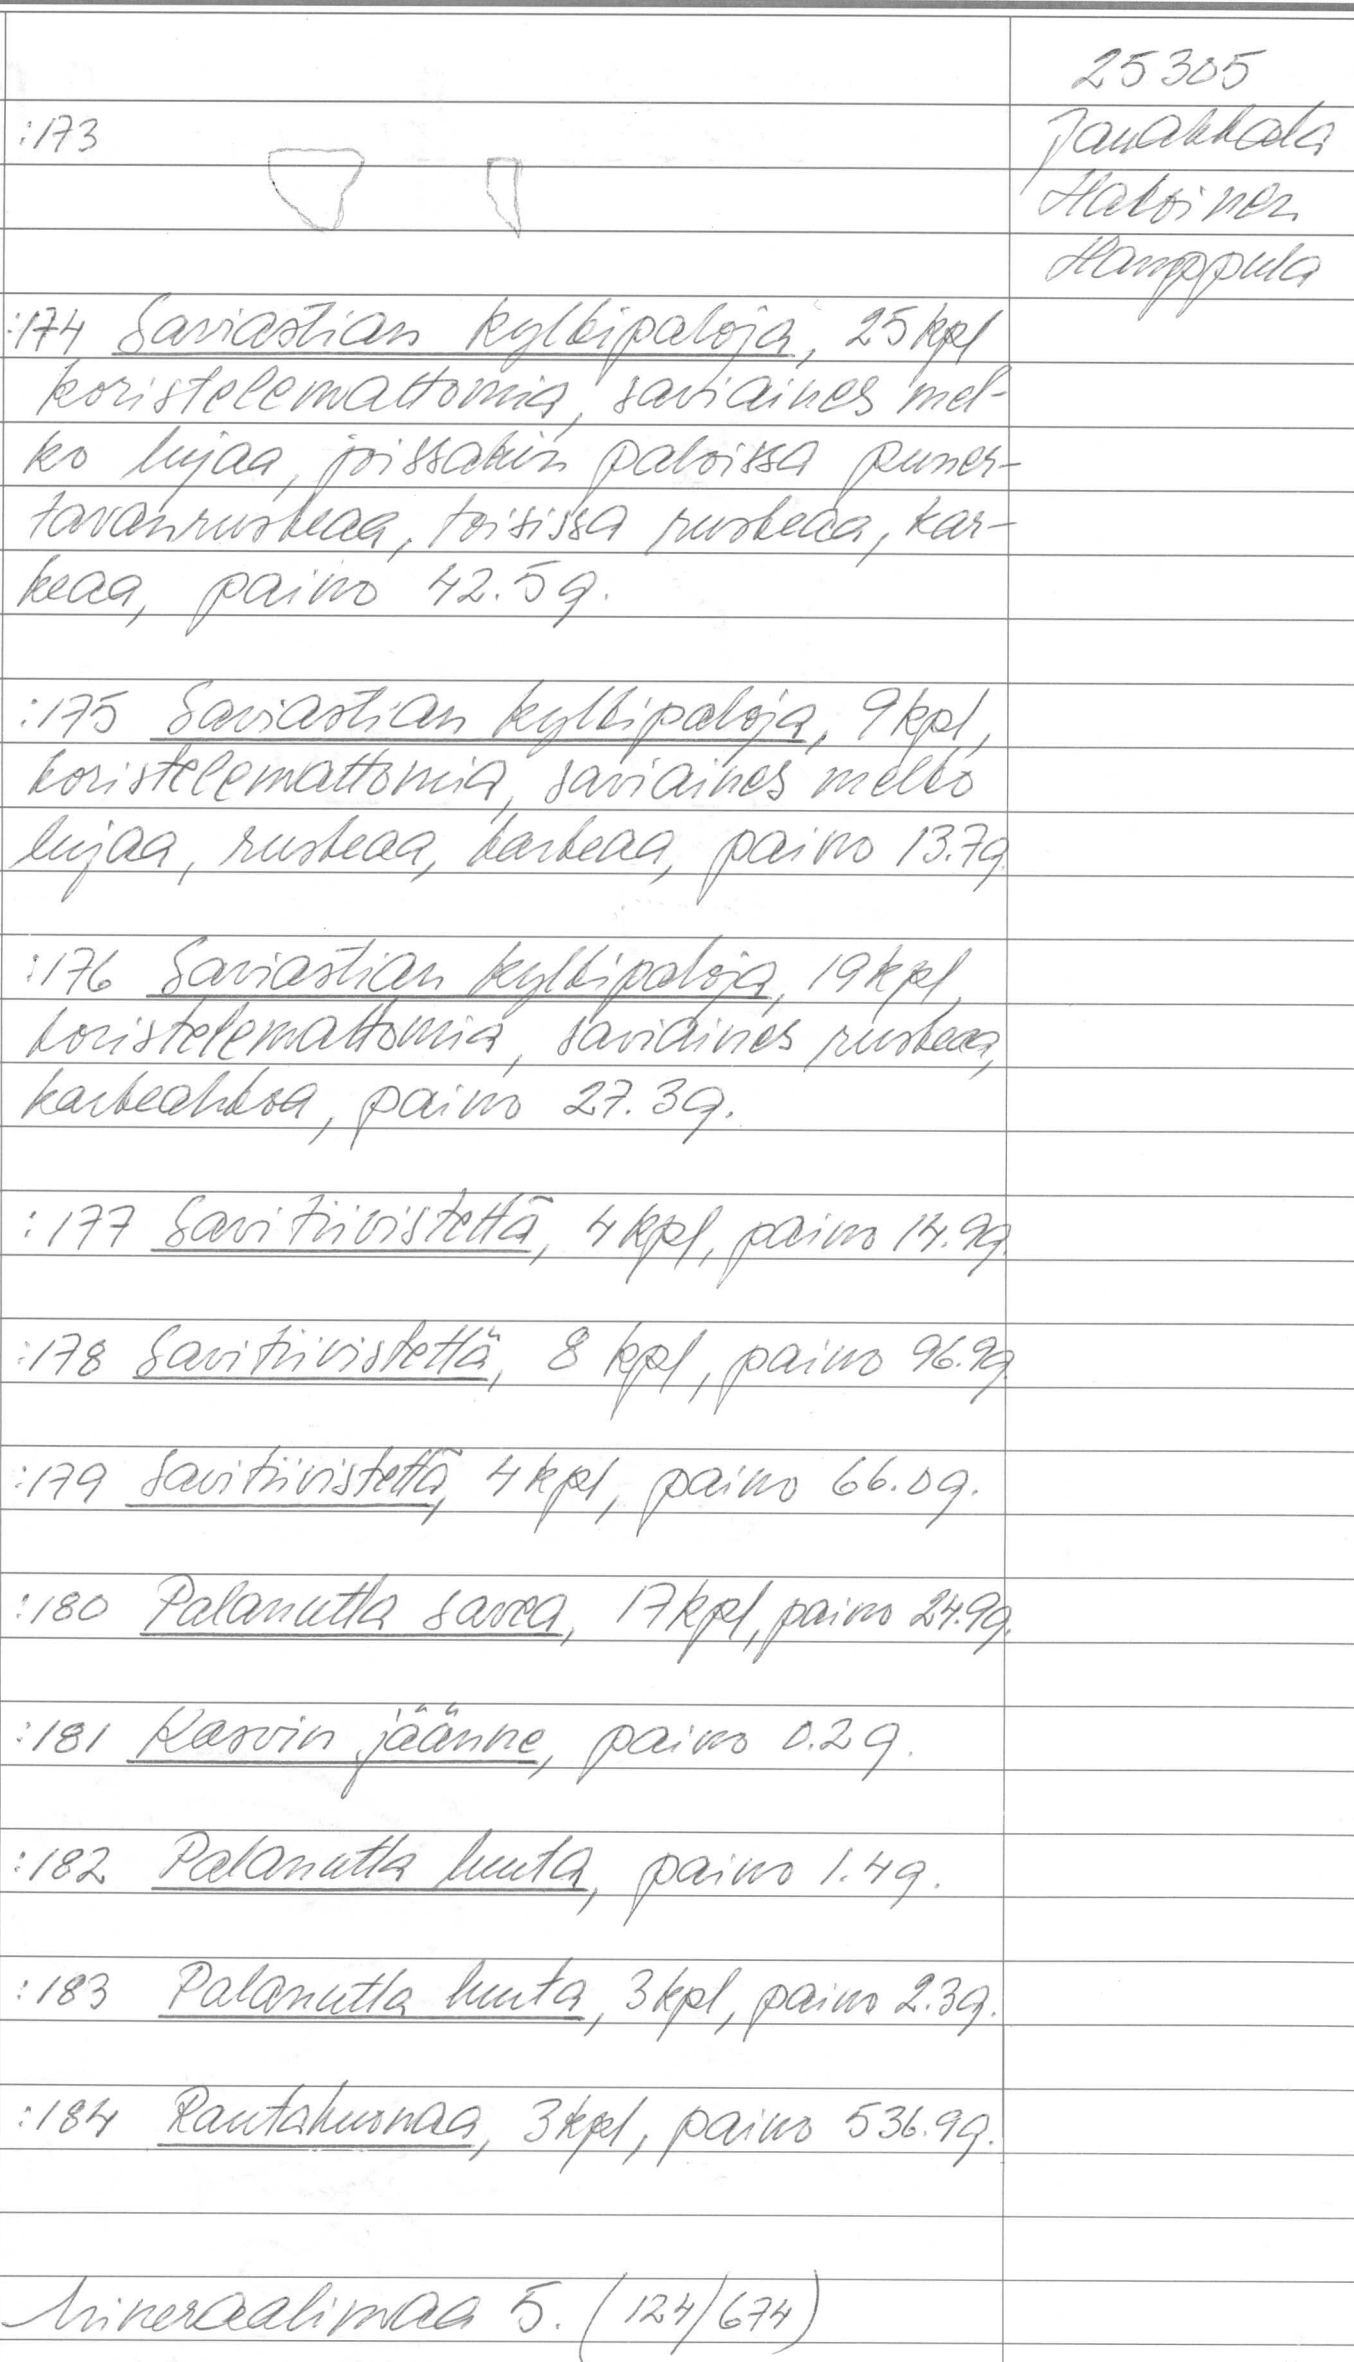 25305
:173
Janakkala
Hakoinen
Hamppula
:174 Saviastian kylkipaloja, 25 kpl
koristelemattomia, saviaines mel-
ko lujaa, joissakin paloissa puner-
tavanruskeaa, toisissa ruskeaa, kar-
keaa, paino 42.5g.
:175 Saviastian kylkipaloja, 9 kpl,
koristelemattomia, saviaines melko
lujaa, ruskeaa, karkeaa, paino 13.7g
:176 Saviastian kylkipaloja, 19 kpl,
koristelemattomia, saviaines ruskeaa,
karkeahkoa, paino 27.3g.
:177 Savitiivistettä, 4 kpl, paino 14.9g.
:178 Savitiivistettä, 8 kpl, paino 96.9g.
:179 Savitiivistettä, 4 kpl, paino 66.0g.
:180 Palanutta savea, 17 kpl, paino 24.9g.
:181 Kasvin jäänne, paino 0.2g.
:182 Palanutta luuta, paino 1.4g.
:183 Palanutta luuta, 3 kpl, paino 2.3g.
:184 Rautakuonaa, 3 kpl, paino 536.9g.
Mineraalimaa 5. (124/674)